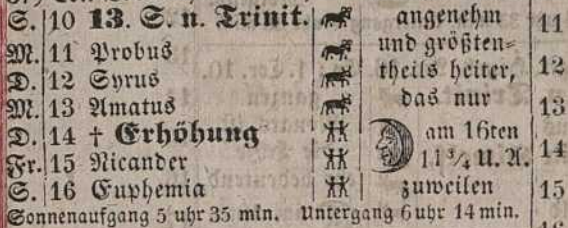 S. 10 13. S. n. Trinit. angenehm 11
M. 11 Probus und größten-
D. 12 Syrus theils heiter, 12
M. 13 Amatus das nur 13
D. 14 † Erhöhung am 16ten
Fr. 15 Nicander 11¾ U. A. 14
S. 16 Euphemia zuweilen 15
Sonnenaufgang 5 uhr 35 min. Untergang 6 uhr 14 min.